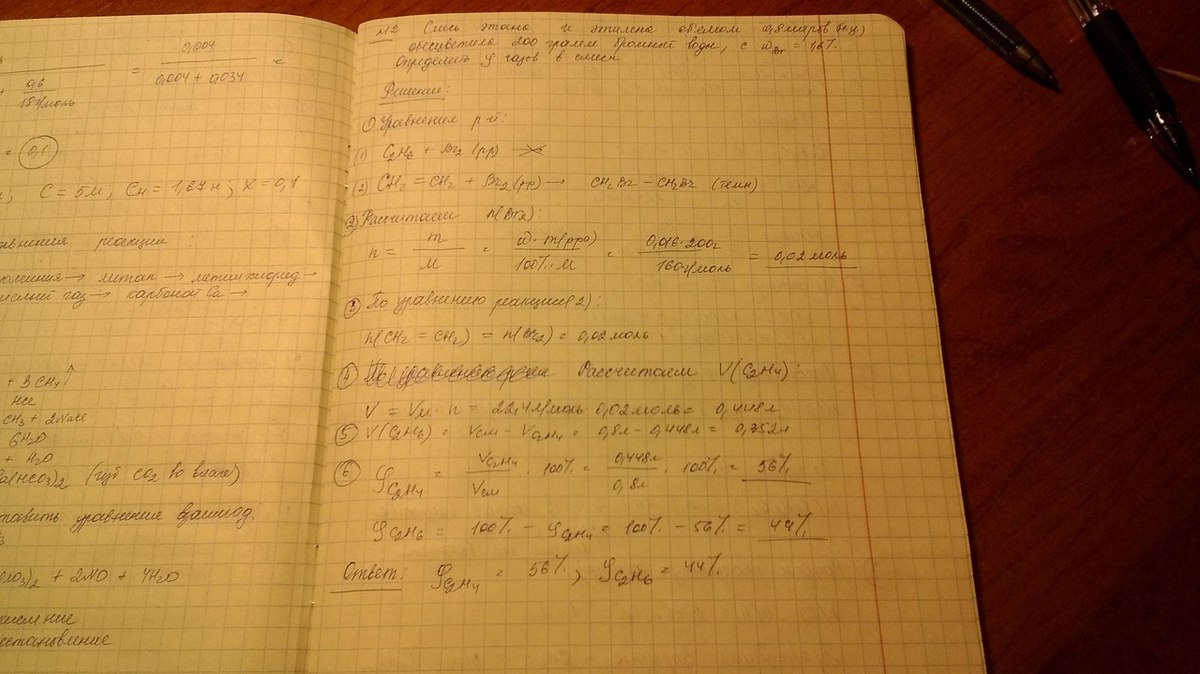 0,004
0,004 + 0,034
=
=
0,6
18 г/моль
+
= 0,1
; C = 5М, Cн = 1,67н; X = 0,1
реакции :
→ метан → метилхлорид →
газ → карбонат Ca →
+ 3CH4↑
HCl
CH3 + 2NaCl
6H2O
+ H2O
(HCO3)2 (изб CO2 во влаге)
ставить уравнение взаимод.
)2 + 2NO + 4H2O
№2 Смесь этана и этилена объемом 0,8 литров (н.у.)
обесцветила 200 грамм бромной воды, с ω = 1,6%.
Определить φ газов в смеси
Решение:
① Уравнения р-й:
(1) C2H6 + Br2 (рр) →
(2) CH2 = CH2 + Br2 (рр) → CH2Br – CH2Br (темн)
② Рассчитаем n(Br2):
n = m / M = ω · m(рра) / 100% · M = 0,016·200г / 160г/моль = 0,02 моль
③ По уравнению реакции (2):
n(CH2 = CH2) = n(Br2) = 0,02 моль.
④ Рассчитаем V(C2H4):
V = Vм · n = 22,4 л/моль · 0,02 моль = 0,448л
⑤ V(C2H6) = Vсм – VC2H4 = 0,8л – 0,448л = 0,352л
⑥ φC2H4 = VC2H4 / Vсм · 100% = 0,448л / 0,8л · 100% = 56%
φC2H6 = 100% – φC2H4 = 100% – 56% = 44%
Ответ: φC2H4 = 56%; φC2H6 = 44%